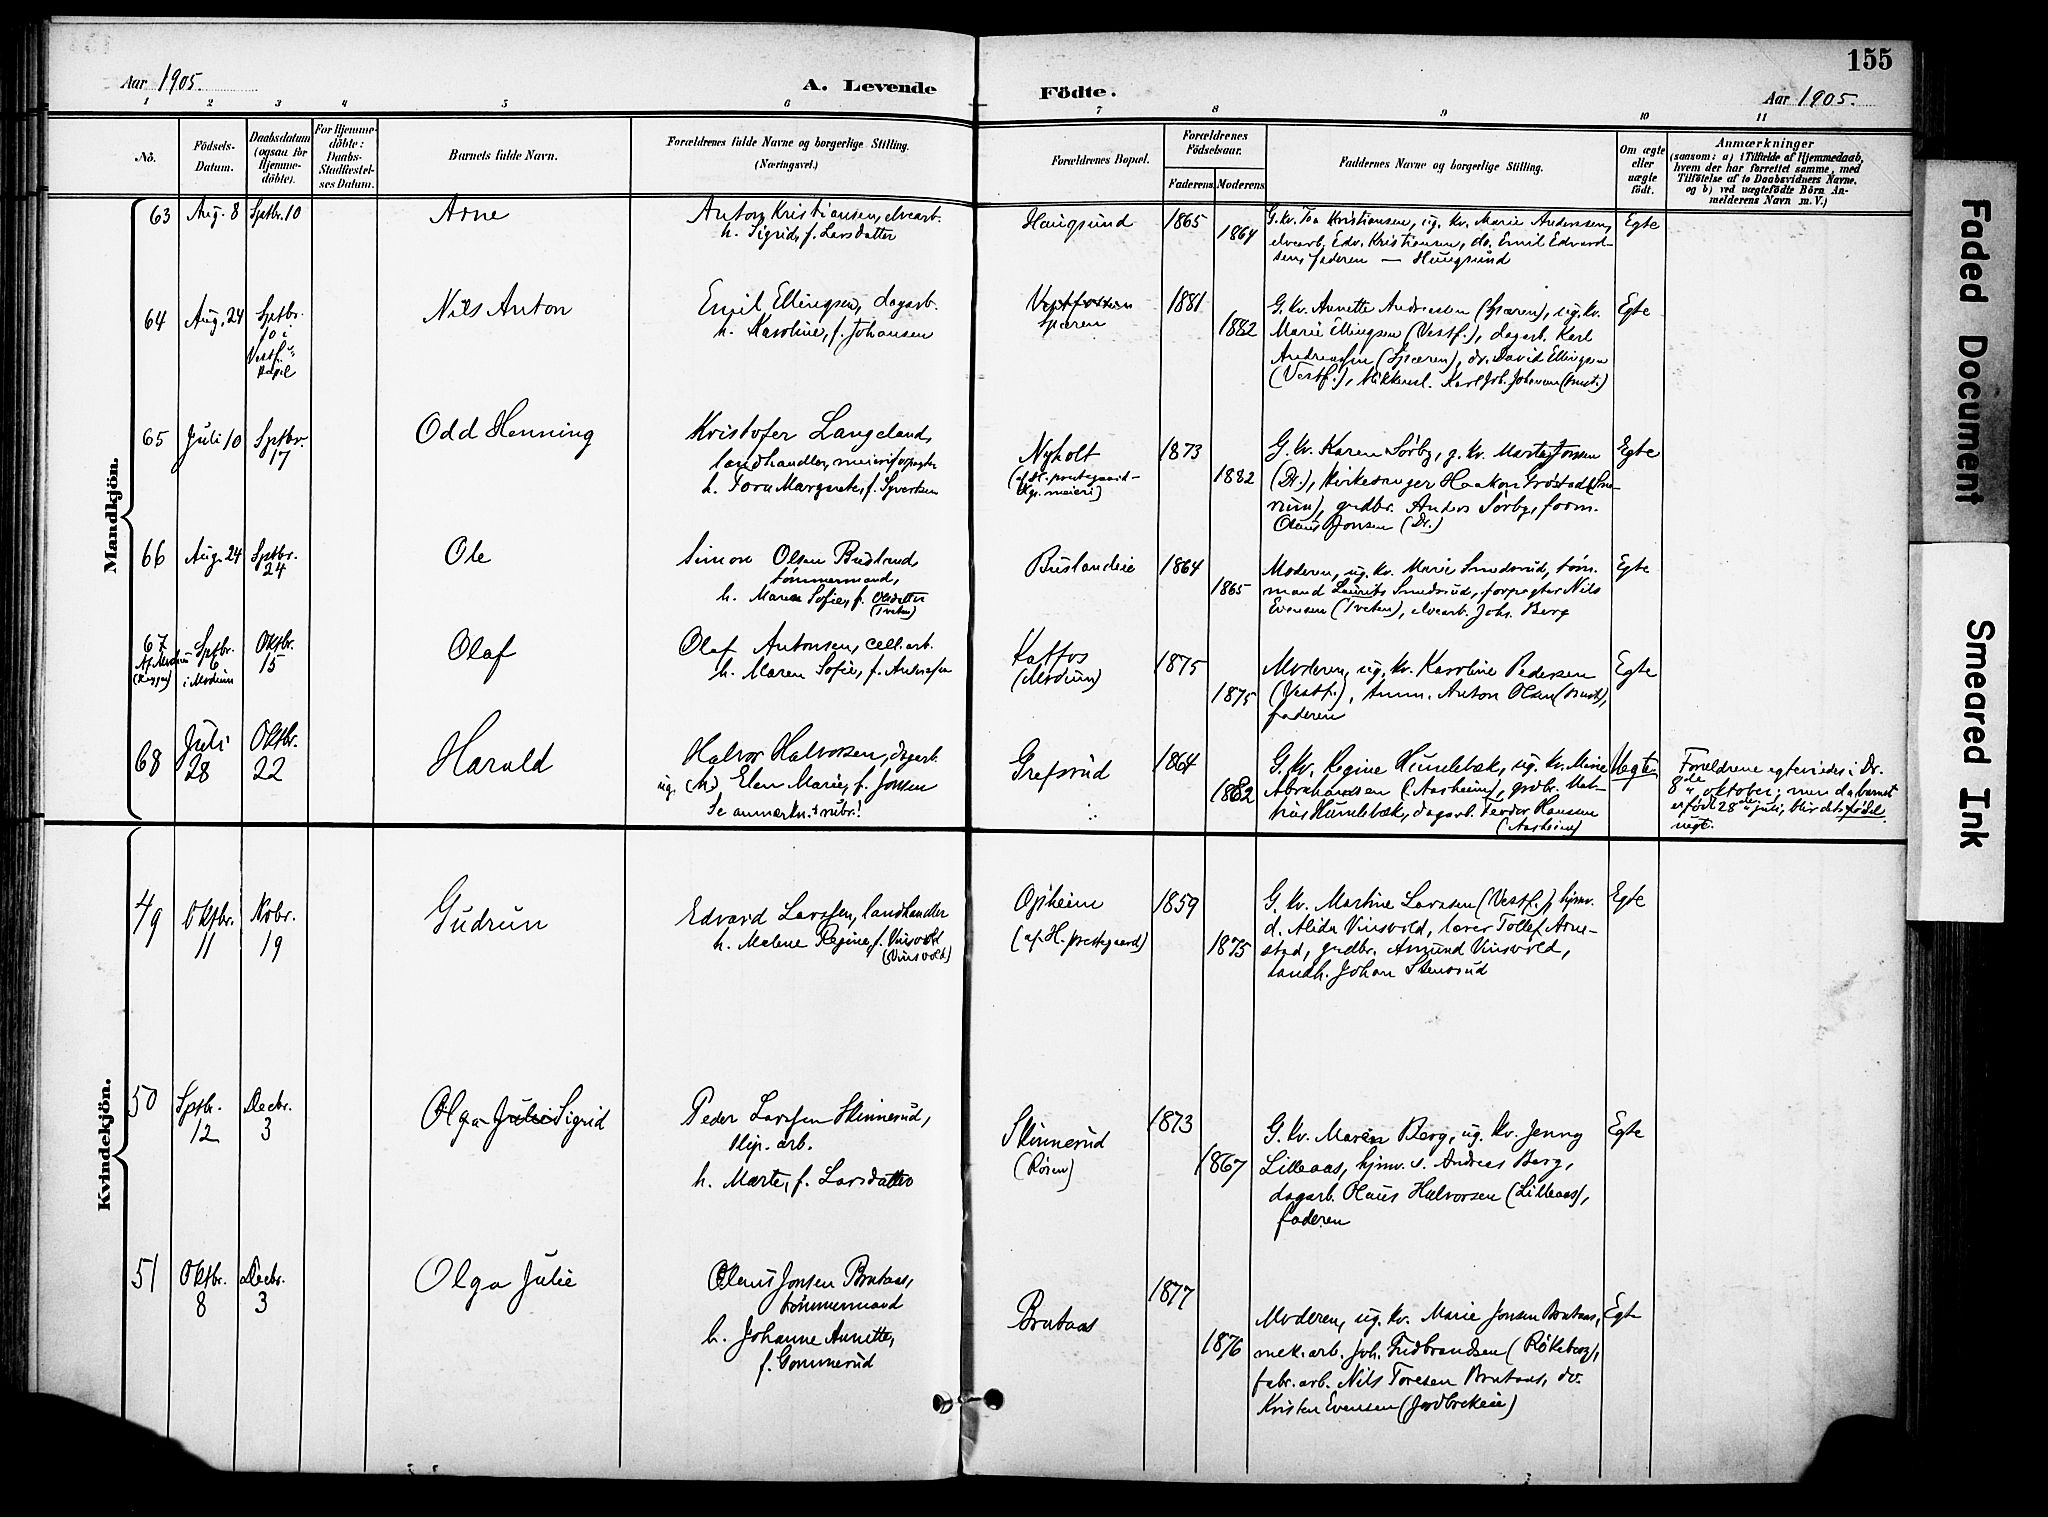 155
Aar 1905.
A. Levende
Födte.
Aar 1905.
1 2 3 4 5 6 7 8 9 10 11
No.
Födsels-
Datum.
Daabsdatum
(ogsaa for
Hjemme-
döbte).
For Hjemme-
döbte:
Daabs-
Stadfæstel-
ses Datum.
Barnets fulde Navn.
Forældrenes fulde Navne og borgerlige Stilling.
(Næringsvei.)
Forældrenes Bopæl.
Forældrenes
Födselsaar.
Faderens. Moderens.
Faddernes Navne og borgerlige Stilling.
Om ægte
eller
uægte
födt.
Anmærkninger
(saasom: a) i Tilfælde af Hjemmedaab,
hvem der har forrettet samme, med
Tilföielse af to Daabsvidners Navne,
og b) ved uægtefödte Börn An-
melderens Navn m. V.)
Mandkjön.
63
Aug. 8
Sptbr. 10
Arne
Anton Kristiansen, elvearb.
h. Sigrid, f. Larsdatter
Haugsund
1865
1864
G. kv. Tea Kristiansen, ug. kv. Marie Andersen,
elvearb. Edv. Kristiansen, do. Emil Edvard-
sen, faderen — Haugsund
Egte
64
Aug. 24
Sptbr.
10 i
Vestf.
kapel
Nils Anton
Emil Ellingsen, dagarb.
h. Karoline, f. Johansen
Vestfossen
Spæren
1881
1882
G. kv. Annette Andreassen (Spæren), ug. kv.
Marie Ellingsen (Vestf.), dagarb. Karl
Andreassen (Spæren), do. David Ellingsen
(Vestf.), Karl Joh. Johansen
Egte
65
Juli 10
Sptbr.
17
Odd Henning
Kristofer Langeland,
landhandler, meieriforpagter
h. Tora Margrete, f. Syvertsen
Nyholt
(af H. prestegaard-
meieri)
1873
1882
G. kv. Karen Sørby, g. kv. Marta Jonsen
(Dr.), kirkesanger Haakon Frøstad
grdbr. Anders Sørby, form.
Olaus Jonsen (Dr.)
Egte
66
Aug. 24
Sptbr.
24
Ole
Simon Olsen Busland,
tømmermand,
h. Maren Sofie, f. Olsdatter
(Tveten)
Buslandeie
1864
1865
Moderen, ug. kv. Marie Smedsrud, tøm.
mand Laurits Smedsrud, forpagter Nils
Evensen (Tveten), elvearb. Johs. Berg
Egte
67
Af Modum
Sptbr.
6
i Modum
Oktbr.
15
Olaf
Olaf Antonsen, cell. arb.
h. Maren Sofie, f. Andersen
Katfos
(Modum)
1875
1875
Moderen, ug. kv. Karoline Pedersen
(Vestf.), Anton Olsen
faderen
Egte
68
Juli
28
Oktbr.
22
Harald
Halvor Halvorsen, dagarb.
ug. (h.) Elen Marie, f. Jonsen
Se anmerkn.s rubr.!
Grefsrud
1864
1882
G. kv. Regine Humlebæk, ug. kv. Mine
Abrahamsen (Aasheim), grdbr. Mat-
hias Humlebæk, dagarb. Peder Hansen
(Aasheim)
Uegte
Foreldrene egteviedes i Dr.
8de oktober; men da barnet
er født 28de juli, blir det født
uegt.
Kvindekjön.
49
Oktbr.
11
Novbr.
19
Gudrun
Edvard Larssen, landhandler
h. Malene Regine, f. Vinsvold
(Vinsvold)
Opheim
(af H. prestegaard)
1859
1875
G. kv. Martine Larssen (Vestf.), hjmv.
d. Alida Vinsvold, lærer Tollef Arne-
stad, grdbr. Amund Vinsvold,
landh. Johan Stensrud
Egte
50
Sptbr.
12
Decbr.
3
Olga Julie Sigrid
Peder Larssen Skinnerud,
slip. arb.
h. Marte, f. Larsdatter
Skinnerud
(Røren)
1873
1867
G. kv. Maren Berg, ug. kv. Jenny
Lilleaas, hjmv. s. Andreas Berg,
dagarb. Olaus Halvorsen (Lilleaas),
faderen
Egte
51
Oktbr.
8
Decbr.
3
Olga Julie
Olaus Jonsen Brataas,
tømmermand
h. Johanne Annette,
f. Gommerud
Brataas
1877
1876
Moderen, ug. kv. Marie Jonsen Brataas,
mek. arb. Joh. Gudbrandsen (Røkeberg),
fabr. arb. Nils Toresen Brataas, do.
Kristen Evensen (Jordbrekeie)
Egte
Faded Document
Smeared Ink